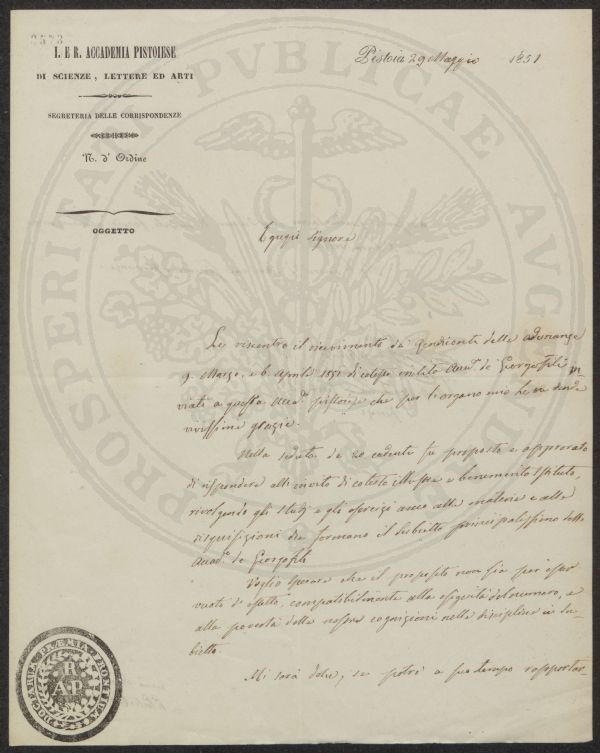 2573
I. E R. ACCADEMIA PISTOIESE
DI SCIENZE, LETTERE ED ARTI
SEGRETERIA DELLE CORRISPONDENZE
N. d' Ordine
OGGETTO
Pistoia 29 Maggio 1851
Egregio Signore
Le riscontro il ricevimento de' Rendiconti delle adunanze
9. Marzo, e 6. Aprile 1851 di cotesta inclita Accad. de' Georgofili in
viati a questa Accad. pistoiese che per l'organo mio Le ne rende
vivissime grazie.
Nella seduta de 20 cadente fu proposto e approvato
di rispondere all' invito di cotesto illustre e benemerito Istituto,
rivolgendo gli studj e gli esercizi anco alle materie e alle
disquisizioni che formano il subietto principalissimo della
Accad. de Georgofili
Voglio sperare che il proposito non sia per esser
vuoto di effetto, compatibilmente alla esiguità del numero, e
alla povertà delle nostre cognizioni nelle discipline in su-
bietto.
Mi sarà dolce, se potrò a suo tempo rapportar-
PROSPERITATI PUBLICAE AUGENDAE
PRAEMIA